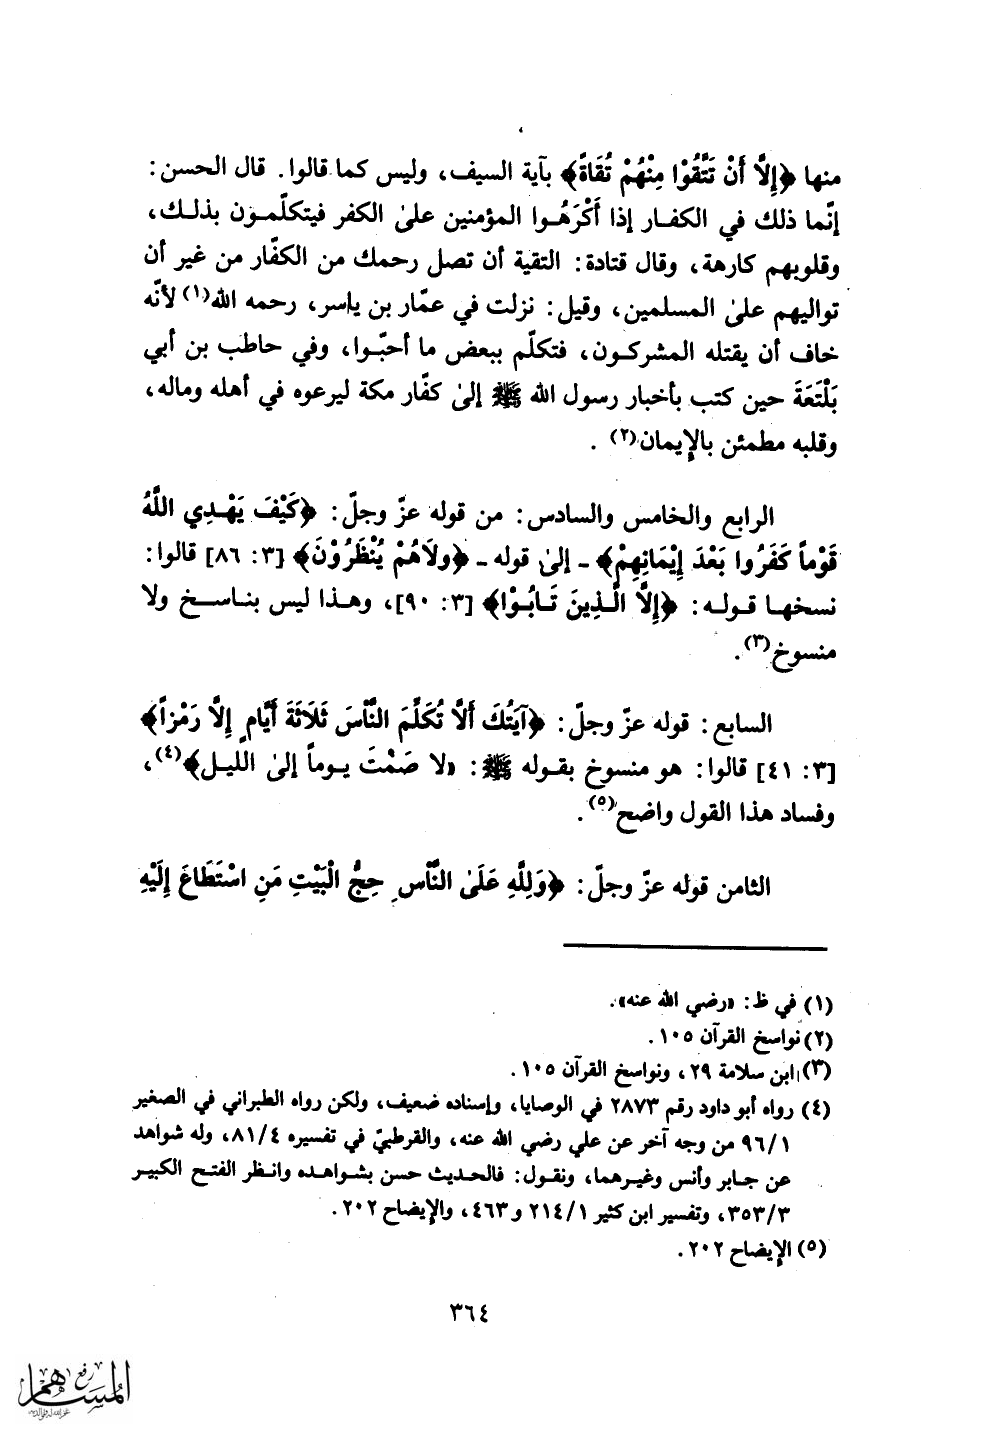 منها ﴿إِلَّا أَنْ تَتَّقُوْا مِنْهُمْ تُقَاةً﴾ بآية السيف، وليس كما قالوا. قال الحسن:
إنّما ذلك في الكفـار إذا أَكْرَهُـوا المؤمنين علىٰ الكفر فيتكلّمـون بذلـك،
وقلوبهم كارهة، وقال قتادة: التقية أن تصل رحمك من الكفّار من غير أن
تواليهم علىٰ المسلمين، وقيل: نزلت في عمّار بن ياسر، رحمه الله(١) لأنّه
خاف أن يقتله المشركـون، فتكلّم ببعض ما أحبّـوا، وفي حاطب بن أبي
بَلْتَعَةَ حين كتب بأخبار رسول الله ﷺ إلىٰ كفّار مكة ليرعوه في أهله وماله،
وقلبه مطمئن بالإيمان(٢) .
الرابع والخامس والسادس: من قوله عزّ وجلّ: ﴿كَيْفَ يَهْـدِي اللَّهُ
قَوْماً كَفَرُوا بَعْدَ إِيْمَانِهِمْ﴾ ـ إلىٰ قوله ـ ﴿ولَاهُمْ يُنْظَرُوْنَ﴾ [٣: ٨٦] قالوا:
نسخهـا قـولـه: ﴿إِلَّا الَّـذِينَ تَـابُـوْا﴾ [٣: ٩٠]، وهـذا ليس بنـاسـخ ولا
منسوخ(٣).
السابع: قوله عزّ وجلّ: ﴿آيَتُكَ أَلَّا تُكَلِّمَ النَّاسَ ثَلَاثَةَ أَيَّامٍ إِلَّا رَمْزاً﴾
[٣: ٤١] قالوا: هو منسوخ بقـوله ﷺ: «لا صَمْتَ يـوماً إلىٰ الليـل﴾(٤)،
وفساد هذا القول واضح(٥).
الثامن قوله عزّ وجلّ: ﴿وَلِلَّهِ عَلَىٰ النَّاسِ حِجُّ الْبَيْتِ مَنِ اسْتَطَاعَ إِلَيْهِ
(١) في ظ: «رضي الله عنه».
(٢) نواسخ القرآن ١٠٥.
(٣) ابن سلامة ٢٩، ونواسخ القرآن ١٠٥.
(٤) رواه أبو داود رقم ٢٨٧٣ في الوصايا، وإسناده ضعيف، ولكن رواه الطبراني في الصغير
٩٦/١ من وجه آخر عن علي رضي الله عنه، والقرطبيّ في تفسيره ٨١/٤، وله شواهد
عن جـابر وأنس وغيـرهما، ونقـول: فالحـديث حسن بشـواهـده وانـظر الفتـح الكبيـر
٣٥٣/٣، وتفسير ابن كثير ٢١٤/١ و ٤٦٣، والإيضاح ٢٠٢.
(٥) الإيضاح ٢٠٢.
٣٦٤
رفع
المساهم